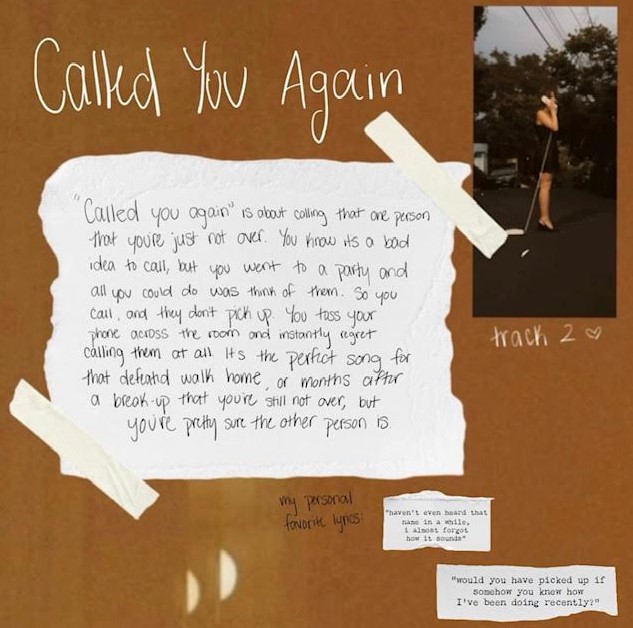 Called You Again
"Called you again" is about calling that one person
that you're just not over. You know its a bad
idea to call, but you went to a party and
all you could do was think of them. So you
call, and they don't pick up. You toss your
phone across the room and instantly regret
calling them at all. It's the perfect song for
that defeatd walk home, or months after
a break-up that you're still not over, but
you're pretty sure the other person is.
track 2 ♡
my personal
favorite lyrics:
"haven't even heard that
name in a while,
i almost forgot
how it sounds"
"would you have picked up if
somehow you knew how
I've been doing recently?"